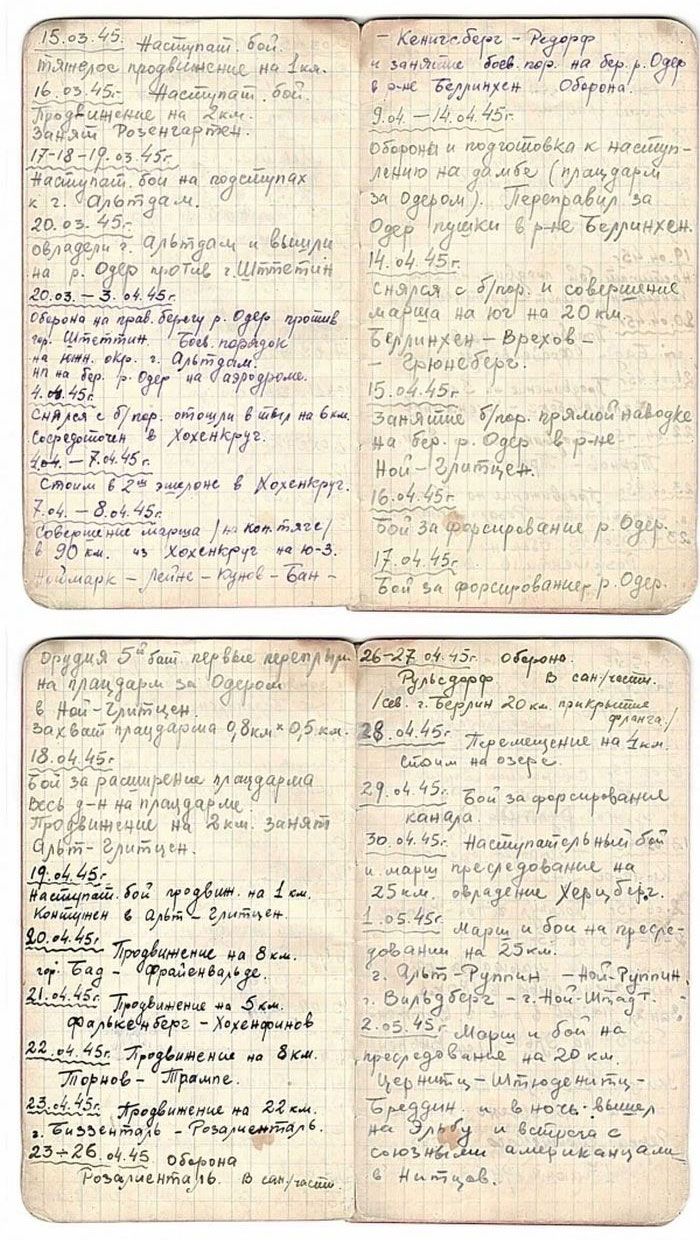 15.03.45. Наступат. бой.
тяжелое продвижение на 1км.
16.03.45г. Наступат. бой.
Продвижение на 2км.
Занят Розенгартен.
17-18-19.03.45г.
Наступат. бои на подступах
к г. Альтдам.
20.03.45г.
овладели г. Альтдам и вышли
на р. Одер против г. Штетин
20.03. – 3.04.45г.
Оборона на прав. берегу р. Одер против
гор. Штеттин. Боев. порядок
на южн. окр. г. Альтдам.
нп на бер. р. Одер на аэродроме.
4.04.45г.
Снялся с б/пор. отошли в тыл на 6км.
Сосредоточен в Хохенкруг.
4.04. – 7.04.45г.
Стоим в 2ом эшелоне в Хохенкруг.
7.04. – 8.04.45г.
Совершение марша /на кон.тяге/
в 90 км. из Хохенкруг на ю-з.
Ноймарк – Лейне – Кунов – Бан –
– Кенигсберг – Редорф
и занятие боев. пор. на бер. р. Одер
в р-не Беллинхен Оборона.
9.04. – 14.04.45г.
Оборона и подготовка к наступ-
лению на дамбе (плацдарм
за Одером). Переправил за
Одер пушки в р-не Беллинхен.
14.04.45г.
Снялся с б/пор. и совершение
марша на юг на 20 км.
Беллинхен – Врехов –
– Грюнеберг.
15.04.45г.
Занятие б/пор. прямой наводке
на бер. р. Одер в р-не
Ной – Глитцен.
16.04.45г.
Бой за форсирование р. Одер.
17.04.45г.
Бой за форсирование р. Одер.
Орудия 5й бат. первые переплыли
на плацдарм за Одером
в Ной-Глитцен.
Захват плацдарма 0,8км × 0,5 км.
18.04.45г.
Бой за расширение плацдарма
Весь д-н на плацдарме.
Продвижение на 2 км. занят
Альт-Глитцен.
19.04.45г.
Наступат. бой продвиж. на 1 км.
Контужен в Альт-Глитцен.
20.04.45г. Продвижение на 8 км.
гор. Бад – Фрайенвальде.
21.04.45г. Продвижение на 5 км.
Фалькенберг – Хохенфинов
22.04.45г. Продвижение на 8км.
Торнов – Трампе.
23.04.45г. Продвижение на 22 км.
г. Бизенталь – Розалиенталь.
23÷26.04.45 Оборона
Розалиенталь. В сан/части.
26-27.04.45г. Оборона.
Рульсдорф В сан./части.
/сев. г. Берлин 20 км. прикрытие
фланга./
28.04.45г. Перемещение на 4км.
стоим на озере.
29.04.45г. Бой за форсирование
канала.
30.04.45г. Наступательный бой
и марш преследование на
25км. овладение Херцберг.
1.05.45г. Марш и бои на пресле-
довании на 25км.
г. Альт-Руппин – Ной-Руппин,
г. Вильдберг – г. Ной-Штадт.
2.05.45г. Марш и бой на
преследование на 20 км.
Цернитц – Штюденитц –
Бреддин. и в ночь вышел
на Эльбу и встреча с
союзными американцами
в Нитцов.